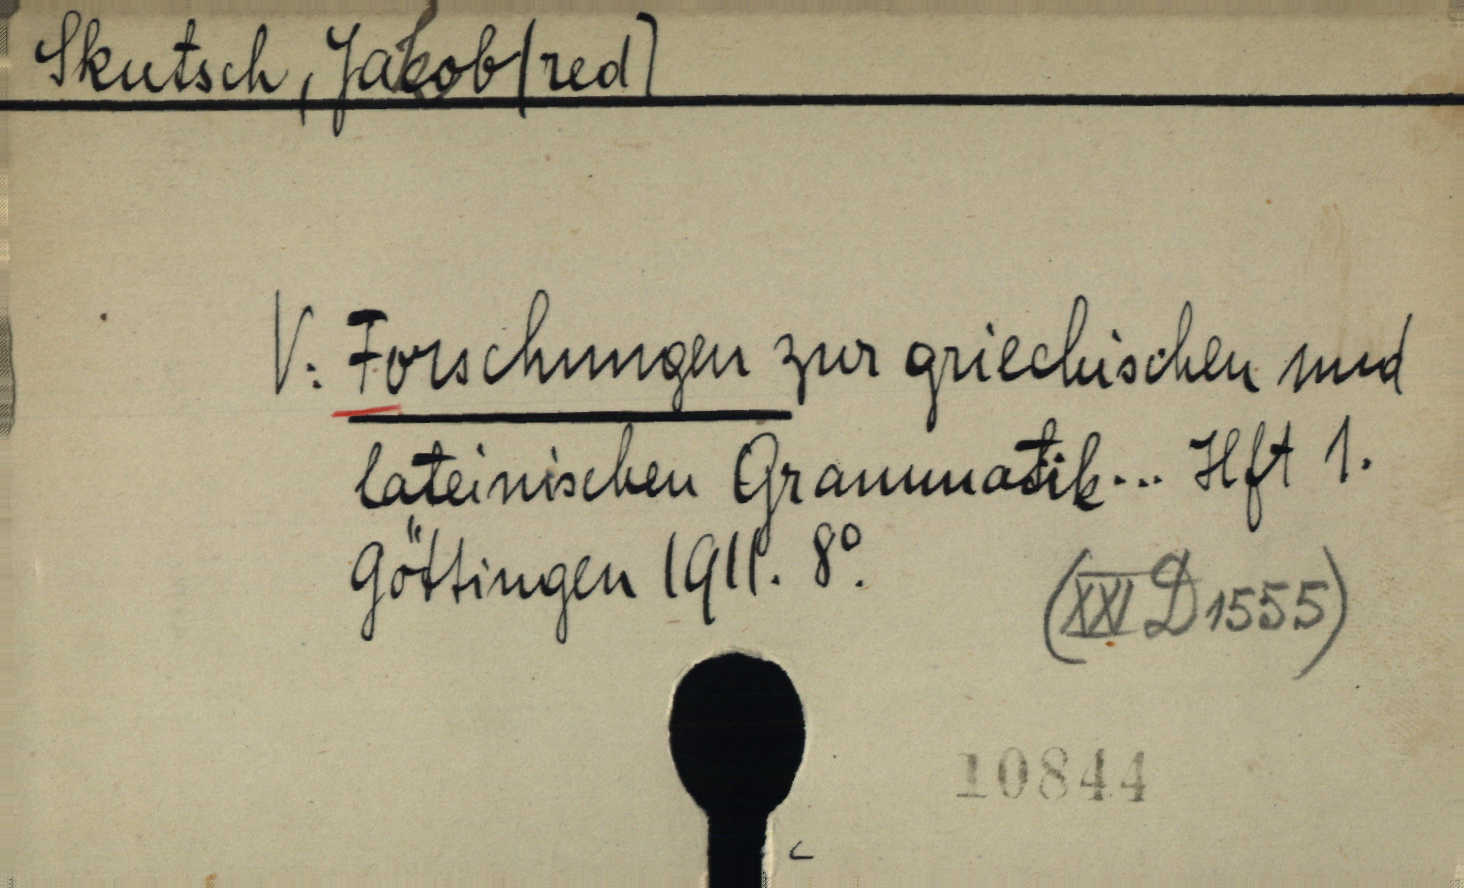 Skutsch, Jakob (red)
V: Forschungen zur griechischen und
lateinischen Grammatik... Hft 1.
Göttingen 1911. 8°.
(XXI D 1555)
10844